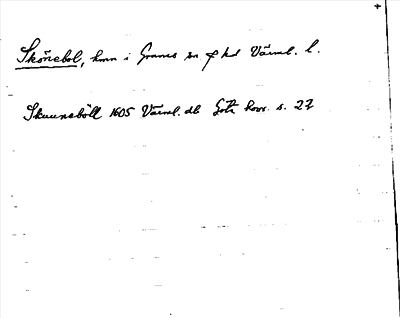 Skönebol, hmn i Grums sn o hd Värml. l.
Skuuneböll 1605 Värml. db Göta hovr. s. 27